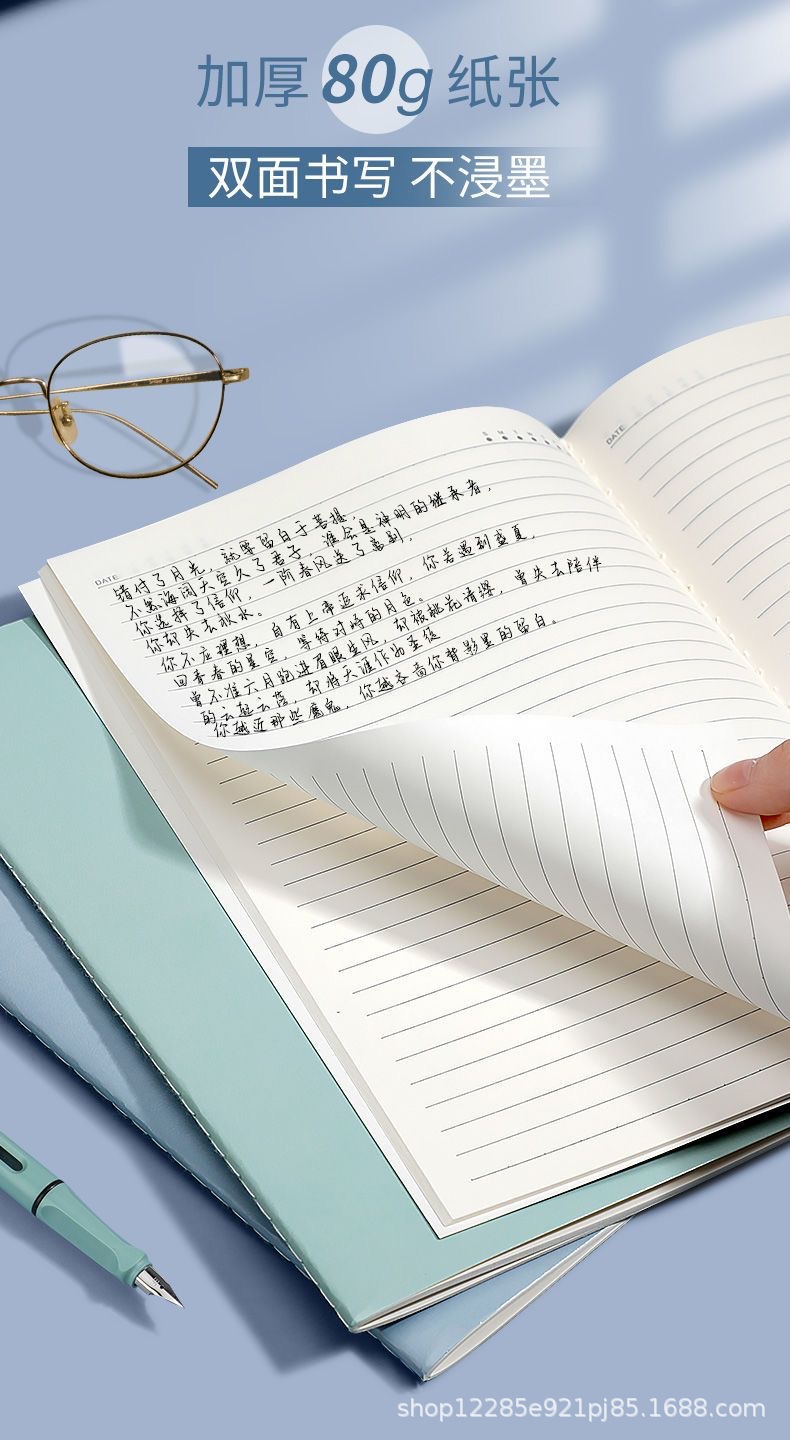 加厚80g纸张
双面书写 不浸墨
DATE
S M T W
DATE
错付了月光，就要留白于菩提，
不然海阔天空久了君子，谁会是神明的继承者，
你选择了信仰，一阶春风送了离别，
你却失去秋水。
你不应理想，自有上帝追求信仰，你若遇到盛夏，
回青春的星空，等待对峙的月色。
曾不准六月跑进有眼生风，却被桃花清缨，曾失去陪伴
的云起云落，却将天涯作为圣经
你越近那些魔鬼，你越吝啬你背影里的留白。
shop12285e921pj85.1688.com